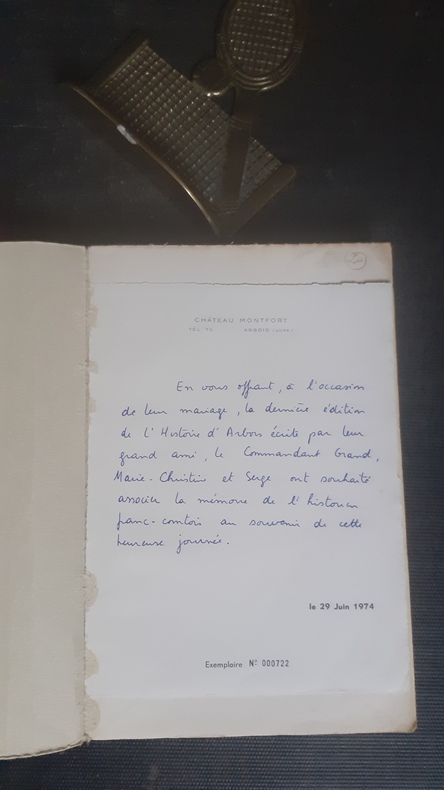 CHÂTEAU MONTFORT
TEL. 70 ARBOIS (JURA)
En vous offrant, à l'occasion
de leur mariage, la dernière édition
de l'Histoire d'Arbois écrite par leur
grand ami, le Commandant Grand,
Marie-Christine et Serge ont souhaité
associer la mémoire de l'historien
franc-comtois au souvenir de cette
heureuse journée.
le 29 Juin 1974
Exemplaire N° 000722